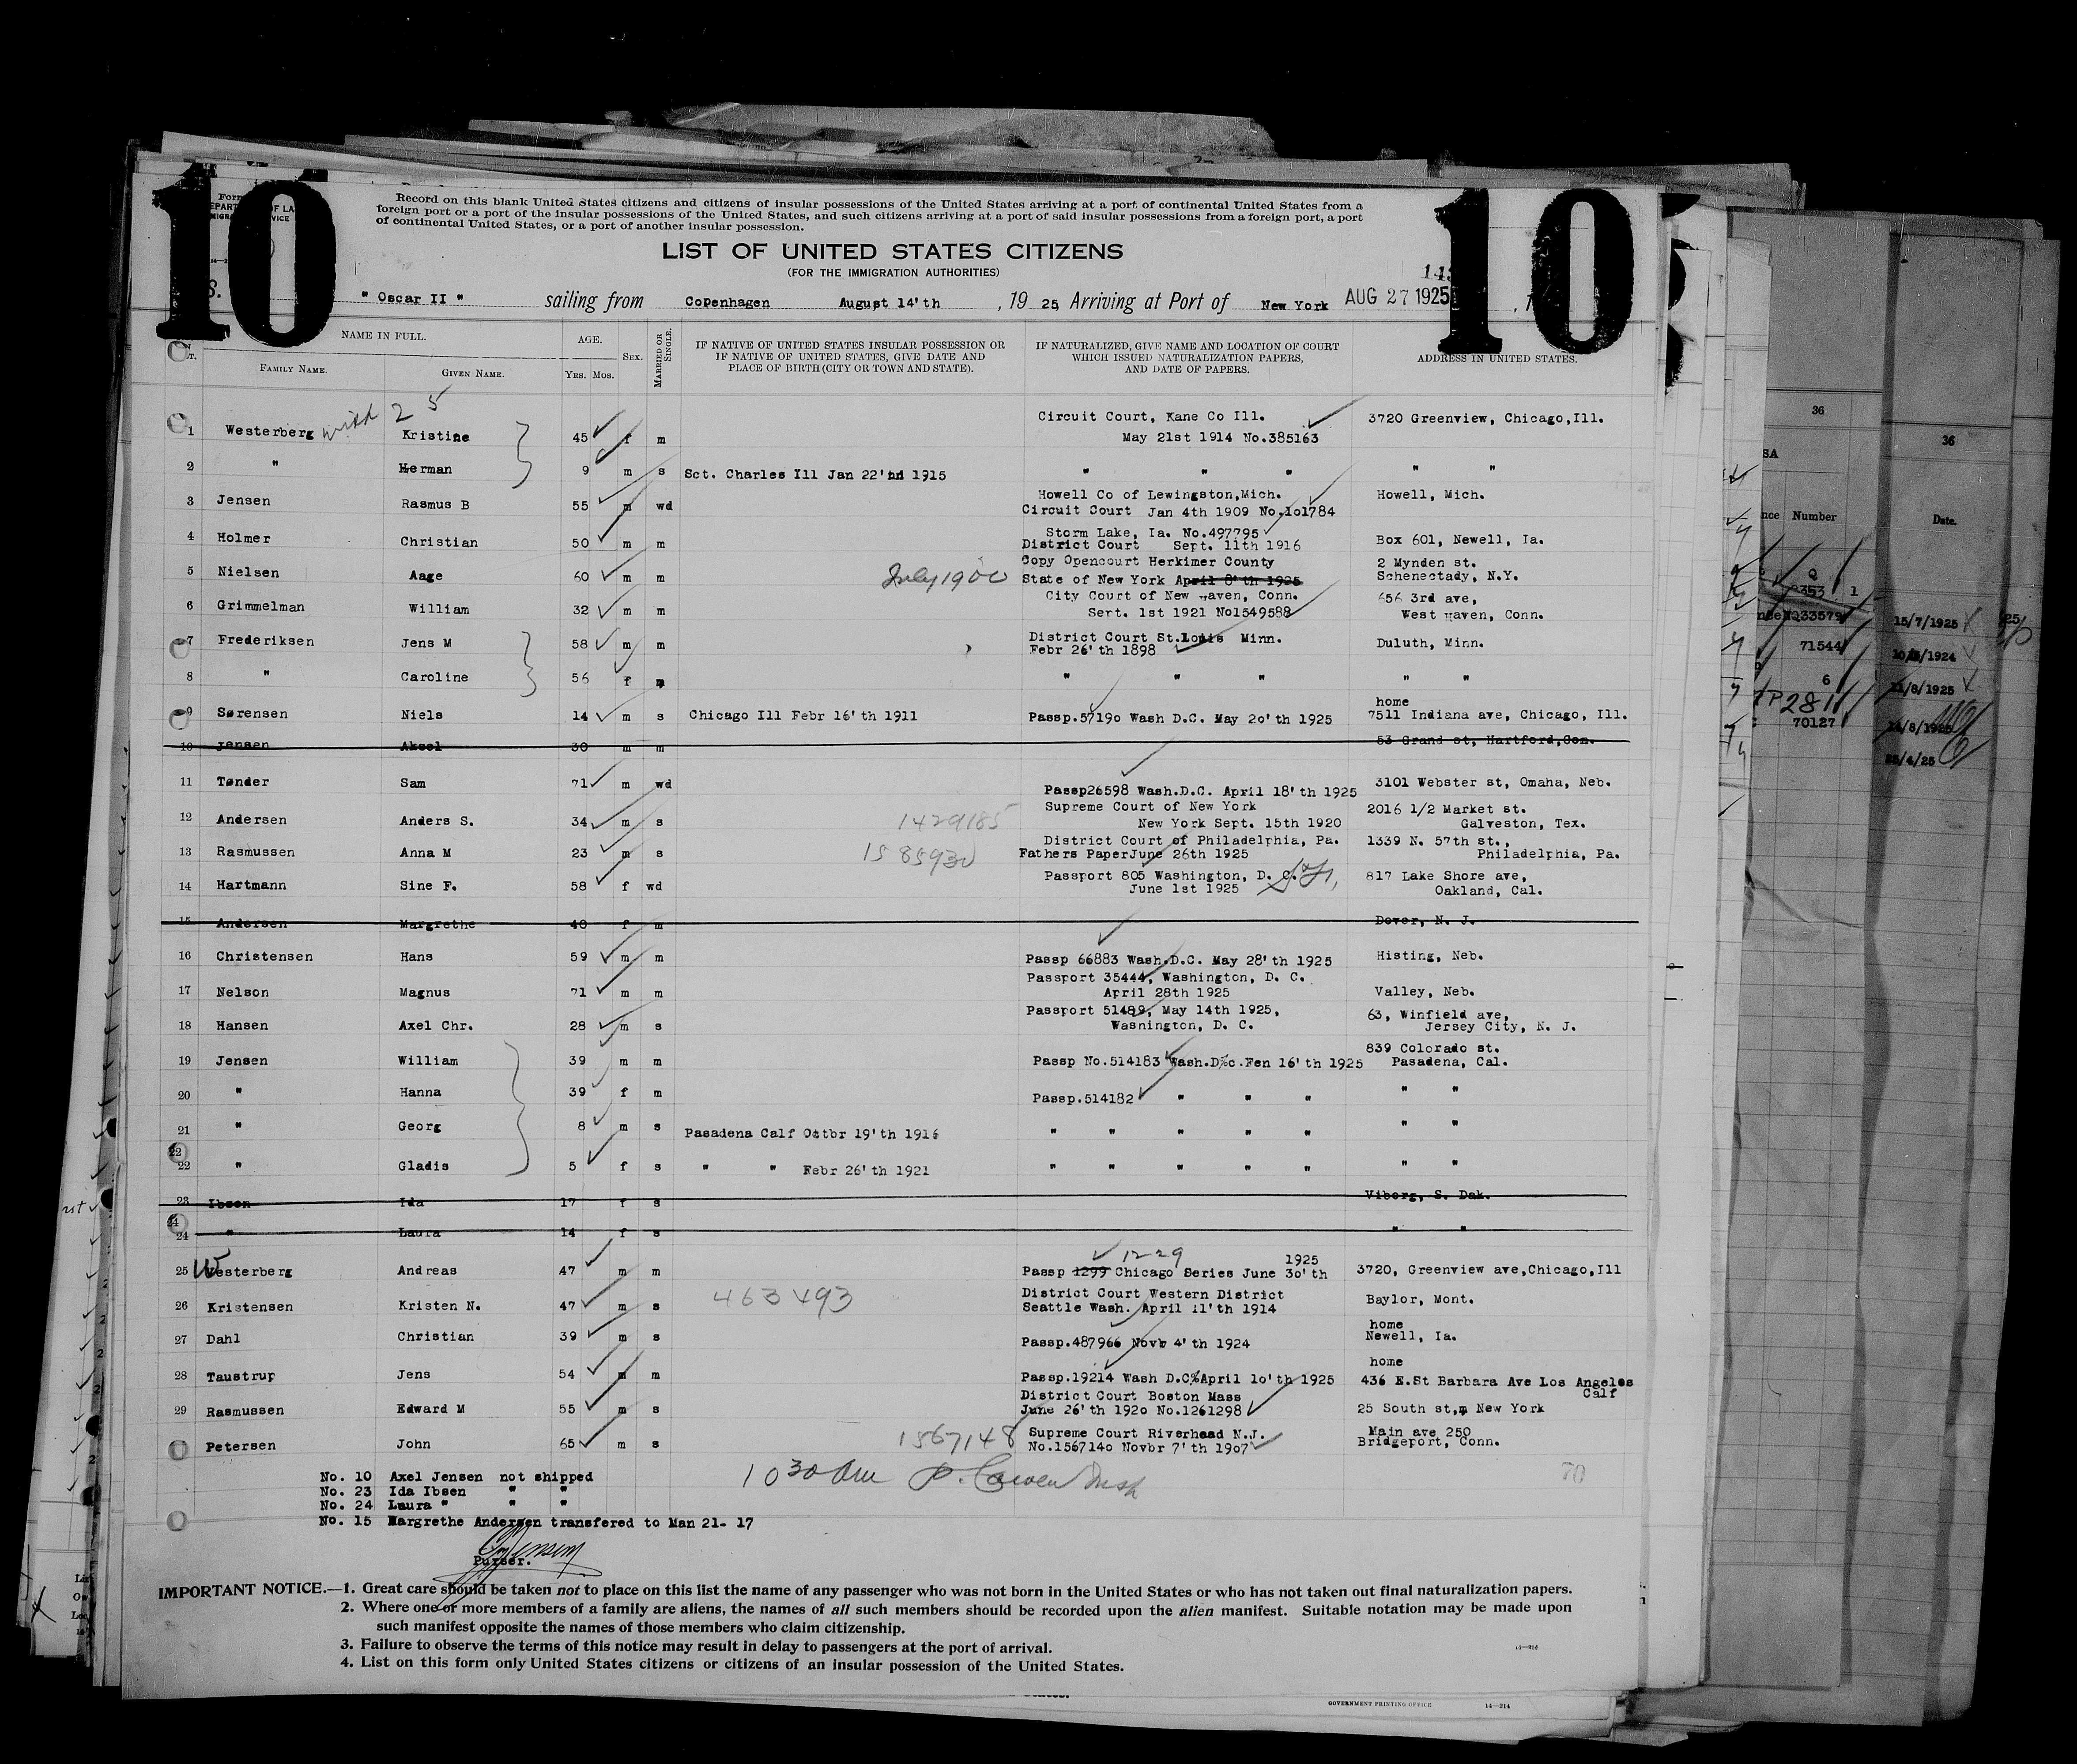 10
10
Form
DEPARTMENT OF LA
IMMIGRA SERVICE
Record on this blank United States citizens and citizens of insular possessions of the United States arriving at a port of continental United States from a
foreign port or a port of the insular possessions of the United States, and such citizens arriving at a port of said insular possessions from a foreign port, a port
of continental United States, or a port of another insular possession.
LIST OF UNITED STATES CITIZENS
(FOR THE IMMIGRATION AUTHORITIES)
S. " Oscar II " sailing from Copenhagen August 14'th , 19 25, Arriving at Port of New York AUG 27 1925
NAME IN FULL. AGE. SEX. MARRIED OR SINGLE. IF NATIVE OF UNITED STATES INSULAR POSSESSION OR IF NATIVE OF UNITED STATES, GIVE DATE AND PLACE OF BIRTH (CITY OR TOWN AND STATE). IF NATURALIZED, GIVE NAME AND LOCATION OF COURT WHICH ISSUED NATURALIZATION PAPERS, AND DATE OF PAPERS. ADDRESS IN UNITED STATES.
FAMILY NAME. GIVEN NAME. YRS. MOS.
with 25
Circuit Court, Kane Co Ill. 3720 Greenview, Chicago,Ill.
1 Westerberg Kristine 45 f m May 21st 1914 No.385163
2 " Herman 9 m s Sct. Charles Ill Jan 22'nd 1915 " " " " "
3 Jensen Rasmus B 55 m wd Howell Co of Lewingston,Mich. Howell, Mich.
Circuit Court Jan 4th 1909 No.101784
4 Holmer Christian 50 m m Storm Lake, Ia. No.497795 Box 601, Newell, Ia.
District Court Sept. 11th 1916
5 Nielsen Aage 60 m m July 1900 Copy Opencourt Herkimer County 2 Mynden st.
State of New York April 8'th 1925 Schenectady, N.Y.
6 Grimmelman William 32 m m City Court of New Haven, Conn. 656 3rd ave,
Sept. 1st 1921 No1549588 West Haven, Conn.
7 Frederiksen Jens M 58 m m District Court St.Louis Minn. Duluth, Minn.
Febr 26'th 1898
8 " Caroline 56 f m " " " " "
home
9 Sørensen Niels 14 m s Chicago Ill Febr 16'th 1911 Passp.57190 Wash D.C. May 20'th 1925 7511 Indiana ave, Chicago, Ill.
10 Jensen Aksel 30 m m 53 Grand st, Hartford,Con.
11 Tønder Sam 71 m wd Passp26598 Wash.D.C. April 18'th 1925 3101 Webster st, Omaha, Neb.
12 Andersen Anders S. 34 m s 1429185 Supreme Court of New York 2016 1/2 Market st.
New York Sept. 15th 1920 Galveston, Tex.
13 Rasmussen Anna M 23 m s 1585930 District Court of Philadelphia, Pa. 1339 N. 57th st.,
Fathers PaperJune 26th 1925 Philadelphia, Pa.
14 Hartmann Sine F. 58 f wd Passport 805 Washington, D. C. 817 Lake Shore ave,
June 1st 1925 Oakland, Cal.
15 Andersen Margrethe 40 f m Dover, N. J.
16 Christensen Hans 59 m m Passp 66883 Wash.D.C. May 28'th 1925 Histing, Neb.
17 Nelson Magnus 71 m m Passport 35444, Washington, D. C.
April 28th 1925 Valley, Neb.
18 Hansen Axel Chr. 28 m s Passport 51489, May 14th 1925, 63, Winfield ave,
Washington, D. C. Jersey City, N. J.
19 Jensen William 39 m m Passp No.514183 Wash.D%c.Fen 16'th 1925 839 Colorado st.
Pasadena, Cal.
20 " Hanna 39 f m Passp.514182 " " " " "
21 " Georg 8 m s Pasadena Calf Octbr 19'th 1916 " " " " " " "
22
22 " Gladis 5 f s " " Febr 26'th 1921 " " " " " " "
23 Ibsen Ida 17 f s Viborg, S. Dak.
24
24 " Laura 14 f s " "
1229 1925
25 Westerberg Andreas 47 m m Passp 1299 Chicago Series June 30'th 3720, Greenview ave,Chicago,Ill
26 Kristensen Kristen N. 47 m s 463493 District Court Western District Baylor, Mont.
Seattle Wash. April 11'th 1914
home
27 Dahl Christian 39 m s Passp.487966 Novbr 4'th 1924 Newell, Ia.
home
28 Taustrup Jens 54 m m Passp.19214 Wash D.C%April 10'th 1925 436 E.St Barbara Ave Los Angeles
Calf
29 Rasmussen Edward M 55 m s District Court Boston Mass
June 26'th 1920 No.1261298 25 South st, New York
Petersen John 65 m s 1567148 Supreme Court Riverhead N.J. Main ave 250
No.1567140 Novbr 7'th 1907 Bridgeport, Conn.
No. 10 Axel Jensen not shipped
No. 23 Ida Ibsen " "
No. 24 Laura " " "
No. 15 Margrethe Andersen transfered to Man 21- 17
10 30 Am
70
Purser.
IMPORTANT NOTICE.—1. Great care should be taken not to place on this list the name of any passenger who was not born in the United States or who has not taken out final naturalization papers.
2. Where one or more members of a family are aliens, the names of all such members should be recorded upon the alien manifest. Suitable notation may be made upon
such manifest opposite the names of those members who claim citizenship.
3. Failure to observe the terms of this notice may result in delay to passengers at the port of arrival.
4. List on this form only United States citizens or citizens of an insular possession of the United States.
14—314
GOVERNMENT PRINTING OFFICE 14—314
36
36
SA
nce Number
Date.
33579 15/7/1925
71544
6 11/8/1925
P281
70127
25/4/25